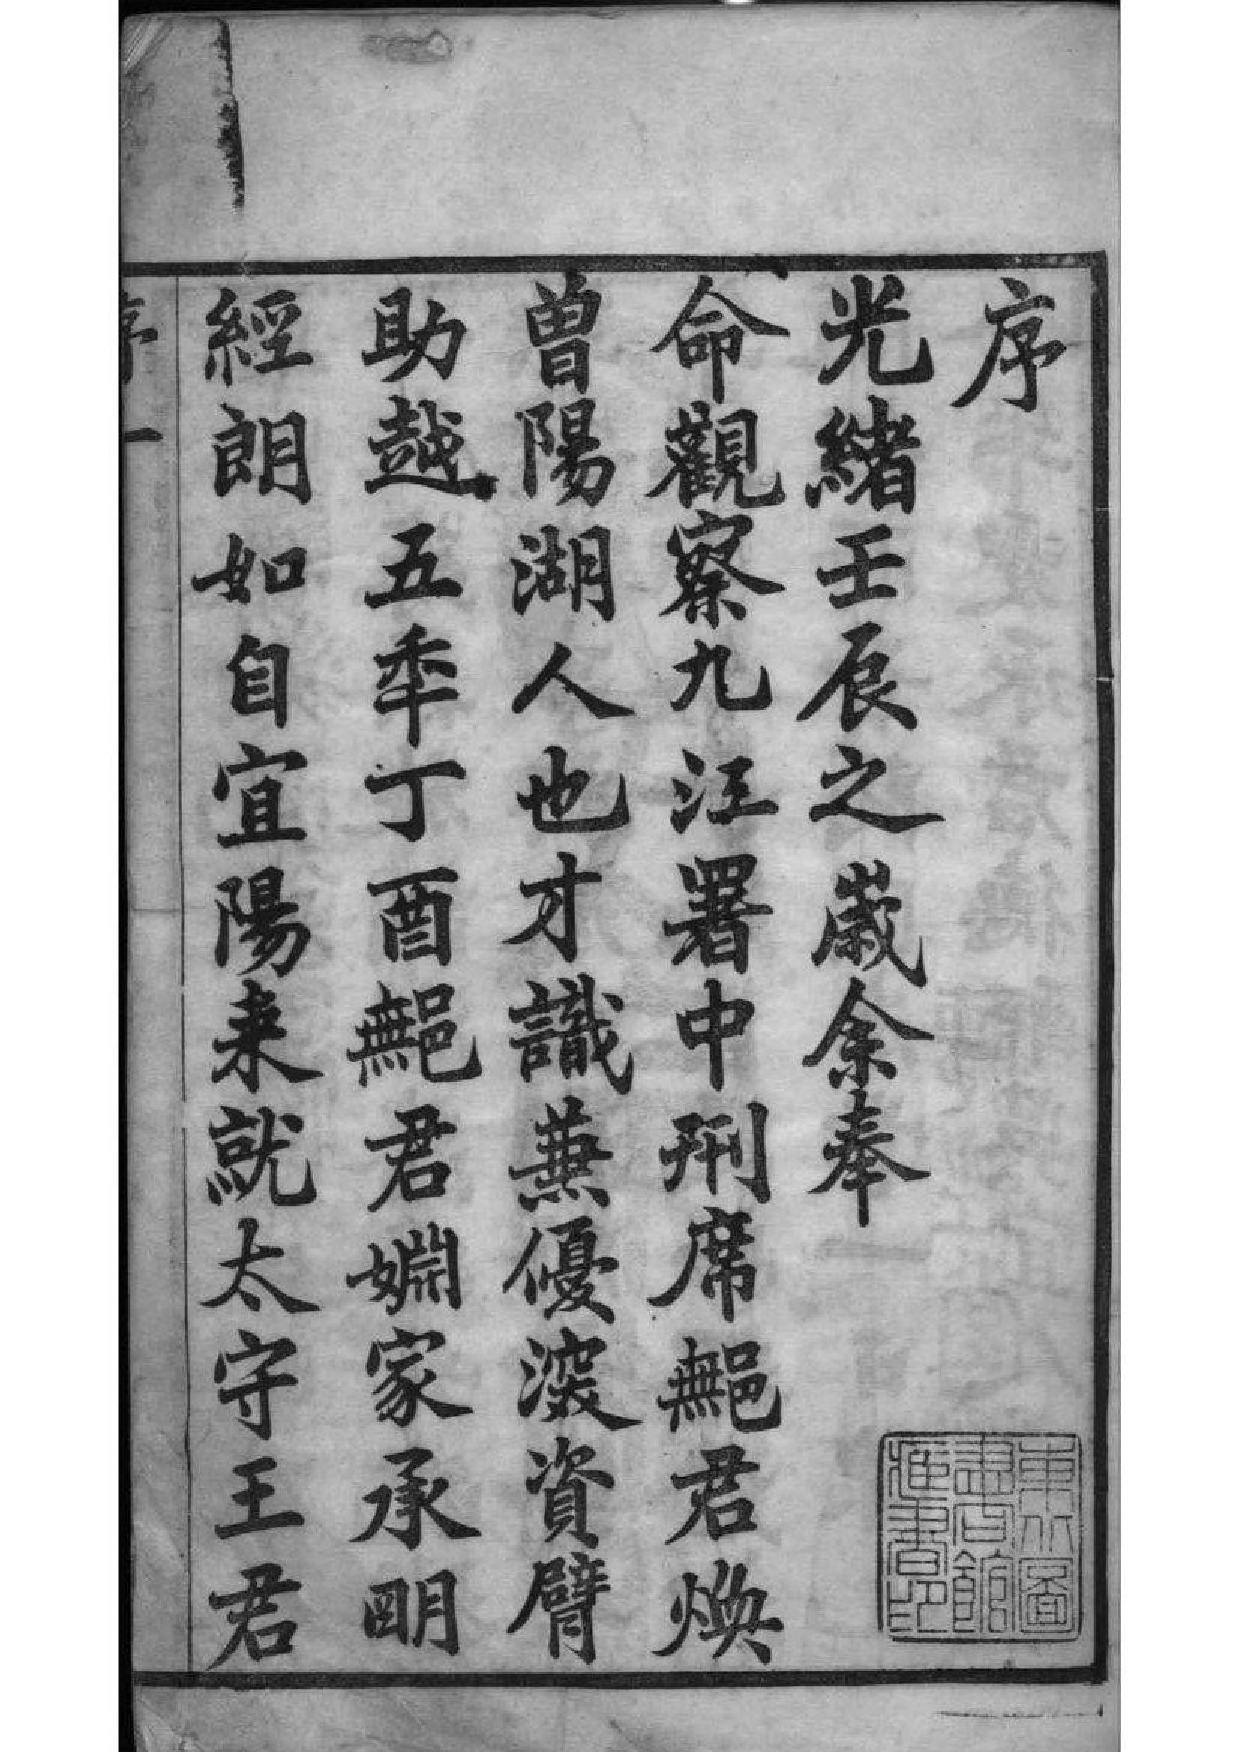 序
光緒壬辰之歲余奉
命觀察九江署中刑席鄦君煥
曾陽湖人也才識蕪優深資臂
助越五秊丁酉鄦君婣家承明
經朗如自宜陽来就太守王君
序一
東北圖
書館
藏書印